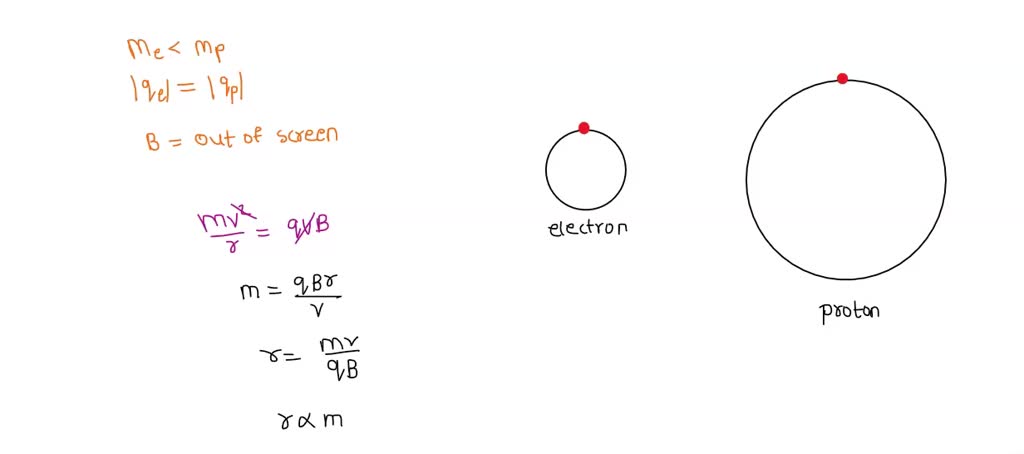 me < mp
|qe| = |qp|
B = out of screen
mv²/r = qvB
m = qBr/v
r = mv/qB
r ∝ m
electron
proton